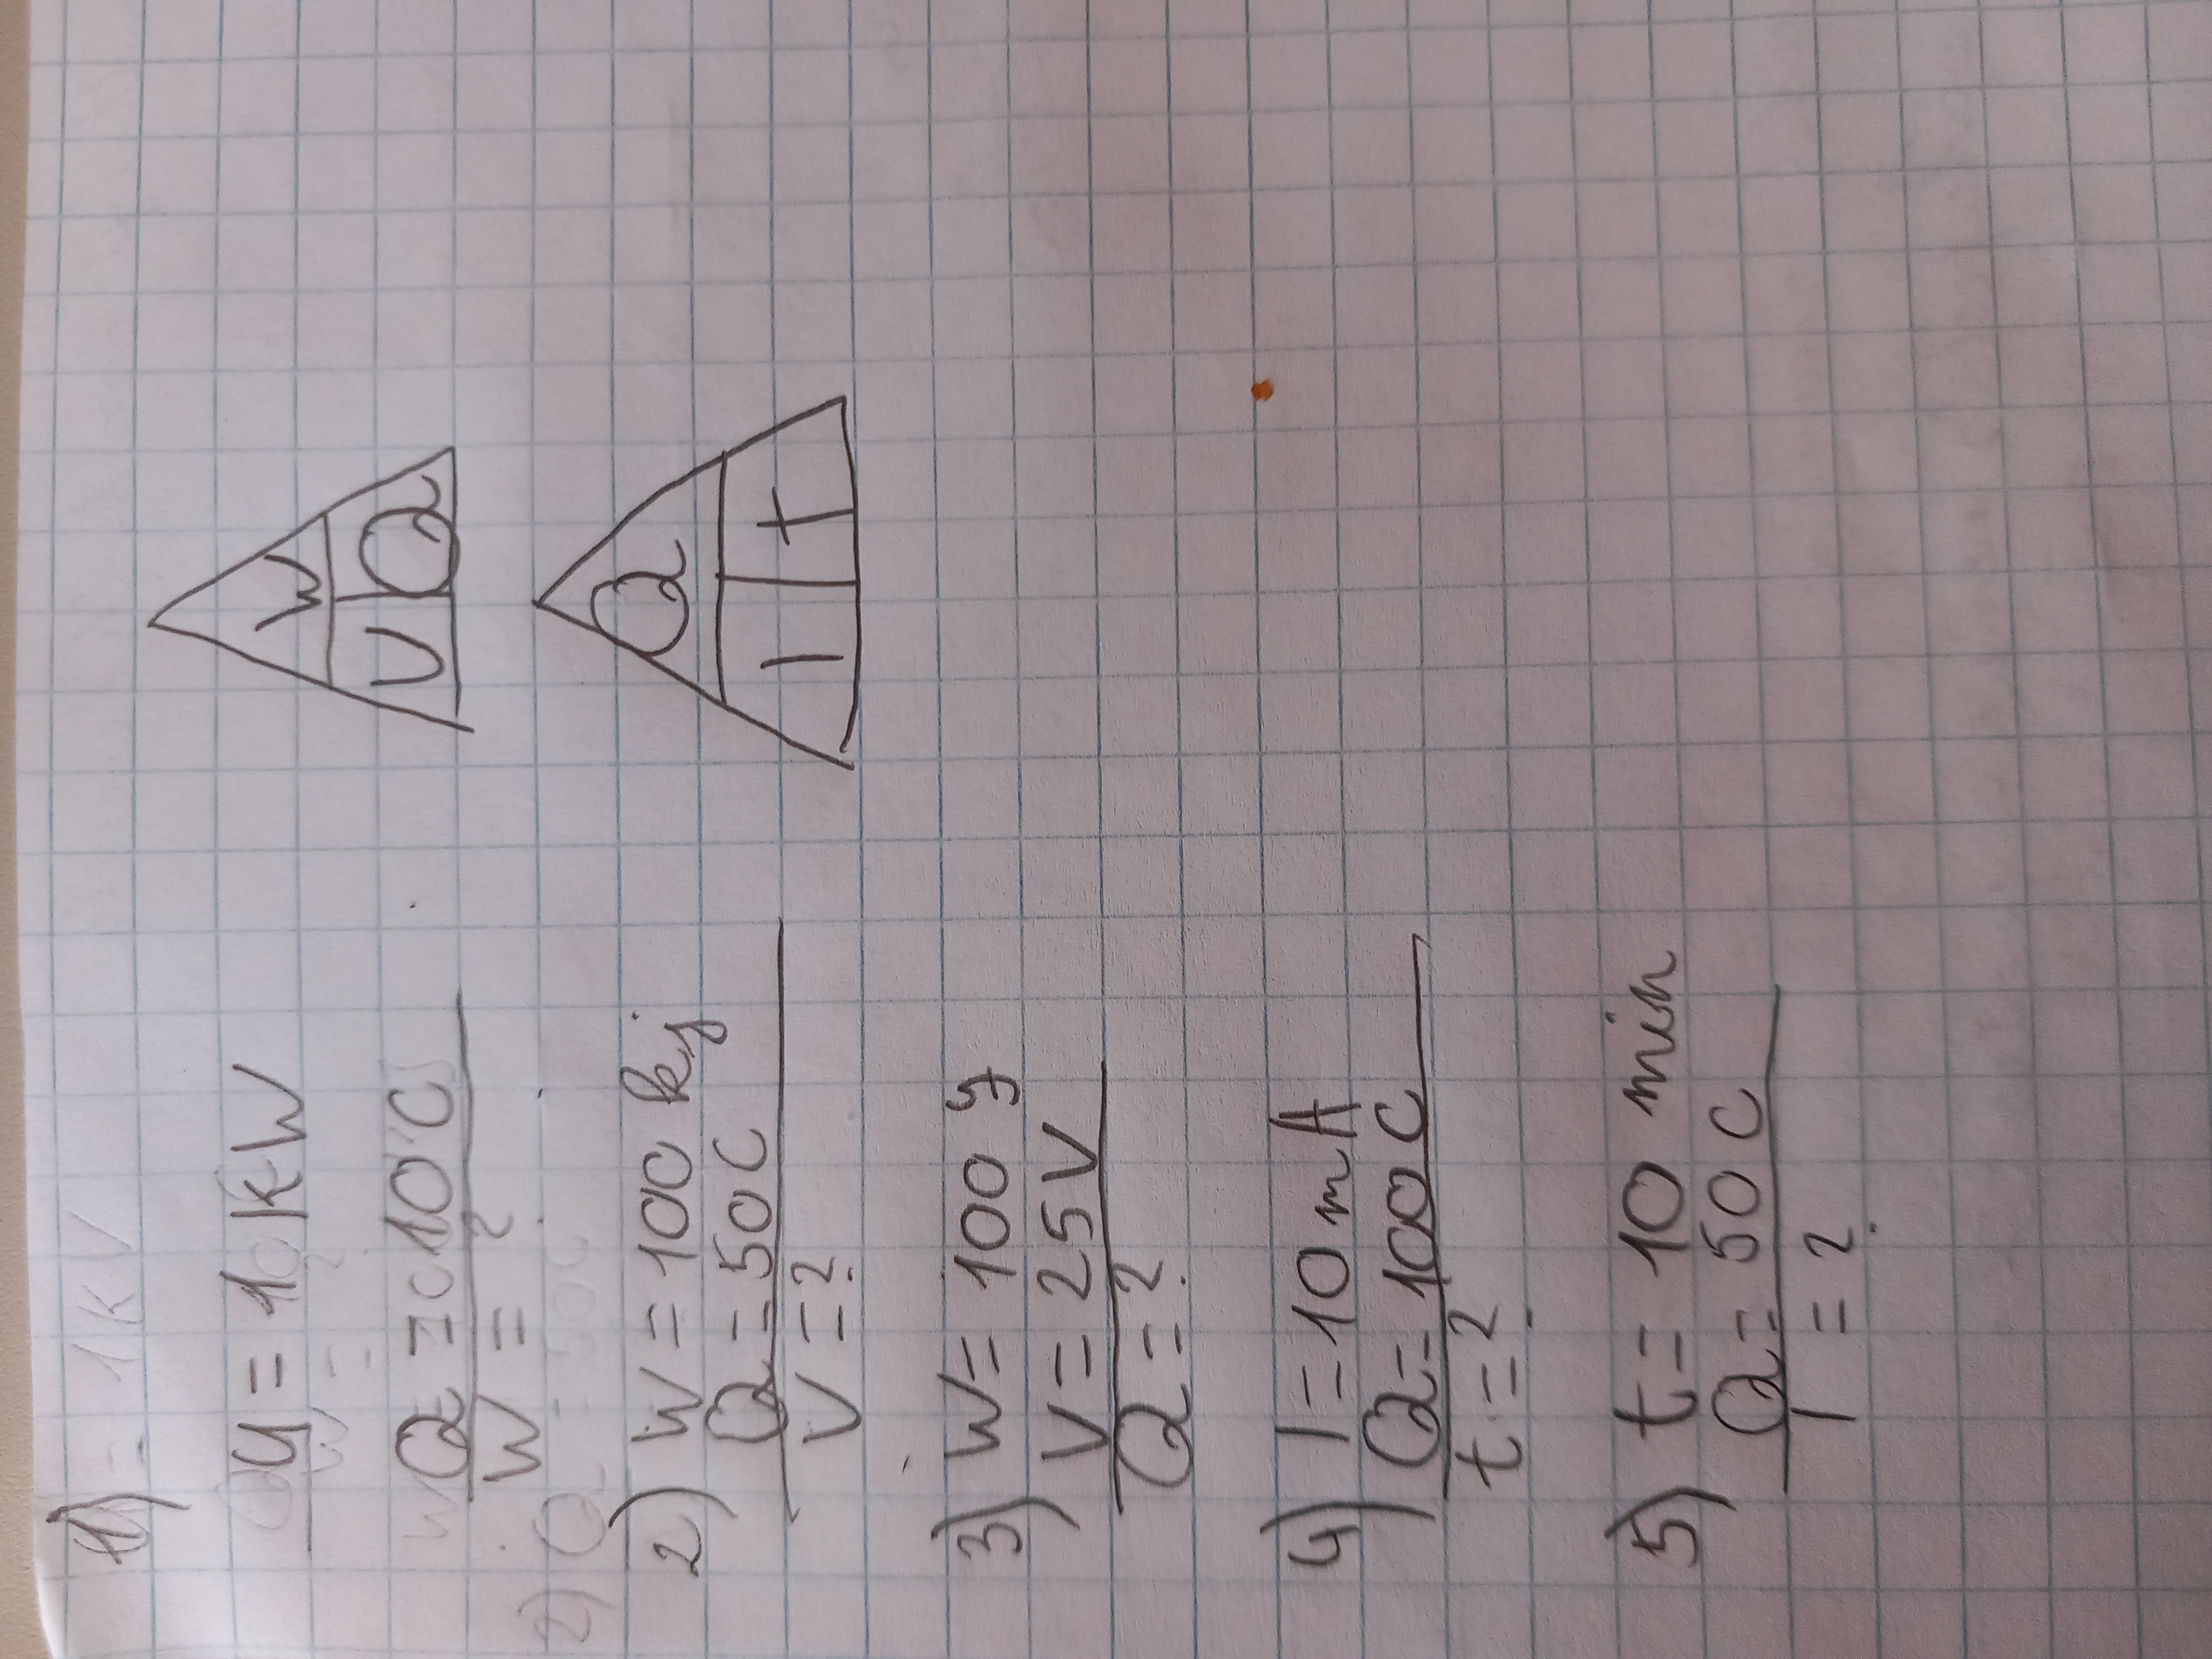 1)
U = 10 kW
Q = 10 C
W = ?
2) W = 100 kj
Q = 50 C
V = ?
3) W = 100 J
V = 25 V
Q = ?
4) I = 10 mA
Q = 100 C
t = ?
5) t = 10 min
Q = 50 C
I = ?
W
U Q
Q
I t